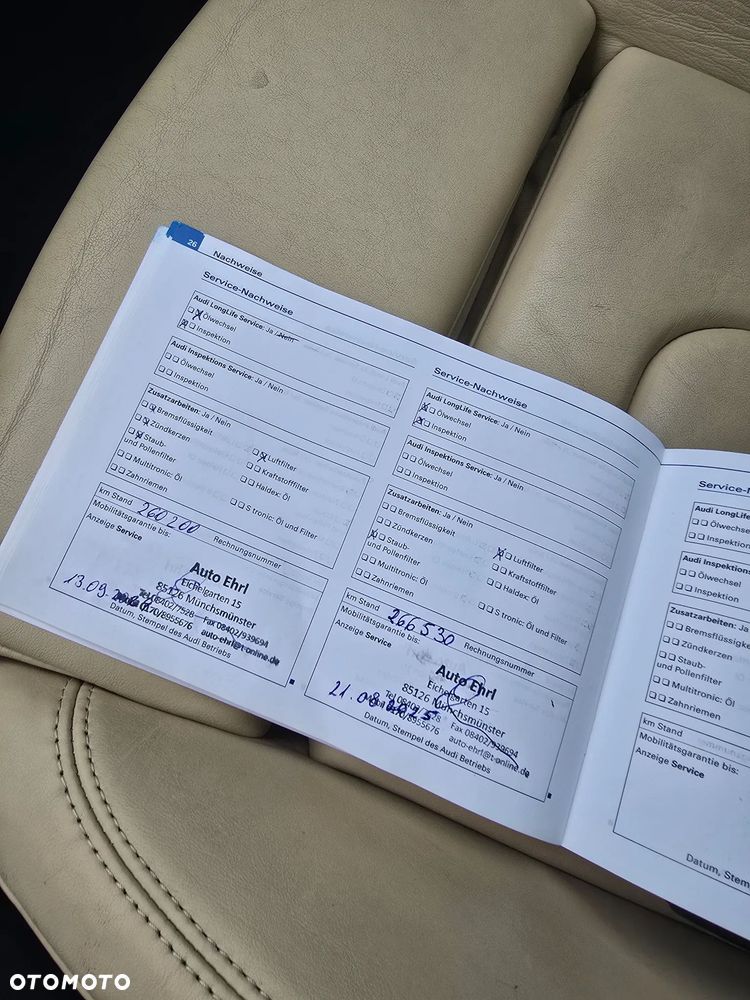 26
Nachweise
Service-Nachweise
Audi LongLife Service: Ja / Nein
Ölwechsel
Inspektion
Audi Inspektions Service: Ja / Nein
Ölwechsel
Inspektion
Zusatzarbeiten: Ja / Nein
Bremsflüssigkeit
Zündkerzen
Staub-
und Pollenfilter
Multitronic: Öl
Zahnriemen
Luftfilter
Kraftstofffilter
Haldex: Öl
S tronic: Öl und Filter
km Stand 260200
Mobilitätsgarantie bis:
Rechnungsnummer
Anzeige Service
Auto Ehrl
Eichelgarten 15
85126 Münchsmünster
Tel 08402/7528 Fax 08402/939694
0170/8955676 auto-ehrl@t-online.de
13.09.
Datum, Stempel des Audi Betriebs
Service-Nachweise
Audi LongLife Service: Ja / Nein
Ölwechsel
Inspektion
Audi Inspektions Service: Ja / Nein
Ölwechsel
Inspektion
Zusatzarbeiten: Ja / Nein
Bremsflüssigkeit
Zündkerzen
Staub-
und Pollenfilter
Multitronic: Öl
Zahnriemen
Luftfilter
Kraftstofffilter
Haldex: Öl
S tronic: Öl und Filter
km Stand 266530
Mobilitätsgarantie bis:
Rechnungsnummer
Anzeige Service
Auto Ehrl
Eichelgarten 15
85126 Münchsmünster
Tel 08402/7528 Fax 08402/939694
0170/8955676 auto-ehrl@t-online.de
21.08.2025
Datum, Stempel des Audi Betriebs
Service-N
Audi LongLife
Ölwechsel
Inspektion
Audi Inspektions
Ölwechsel
Inspektion
Zusatzarbeiten: Ja
Bremsflüssigkeit
Zündkerzen
Staub-
und Pollenfilter
Multitronic: Öl
Zahnriemen
km Stand
Mobilitätsgarantie bis:
Anzeige Service
Datum, Stem
OTOMOTO